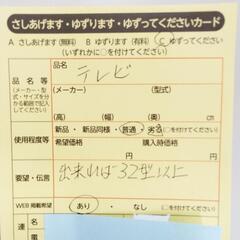 さしあげます・ゆずります・ゆずってくださいカード
A さしあげます(無料) B ゆずります(有料) C ゆずってください
(いずれかに○を付けてください)
品名等
(メーカー・型式・サイズを分かる範囲で記入してください)
品名
テレビ
(メーカー) (型式)
使用程度等
新品・新品同様・普通・劣る(○を付けてください)
希望価格 購入時価格
円
要望・伝言
出来れば32型以上
WEB掲載希望
あり・なし (○を付けてください)
連